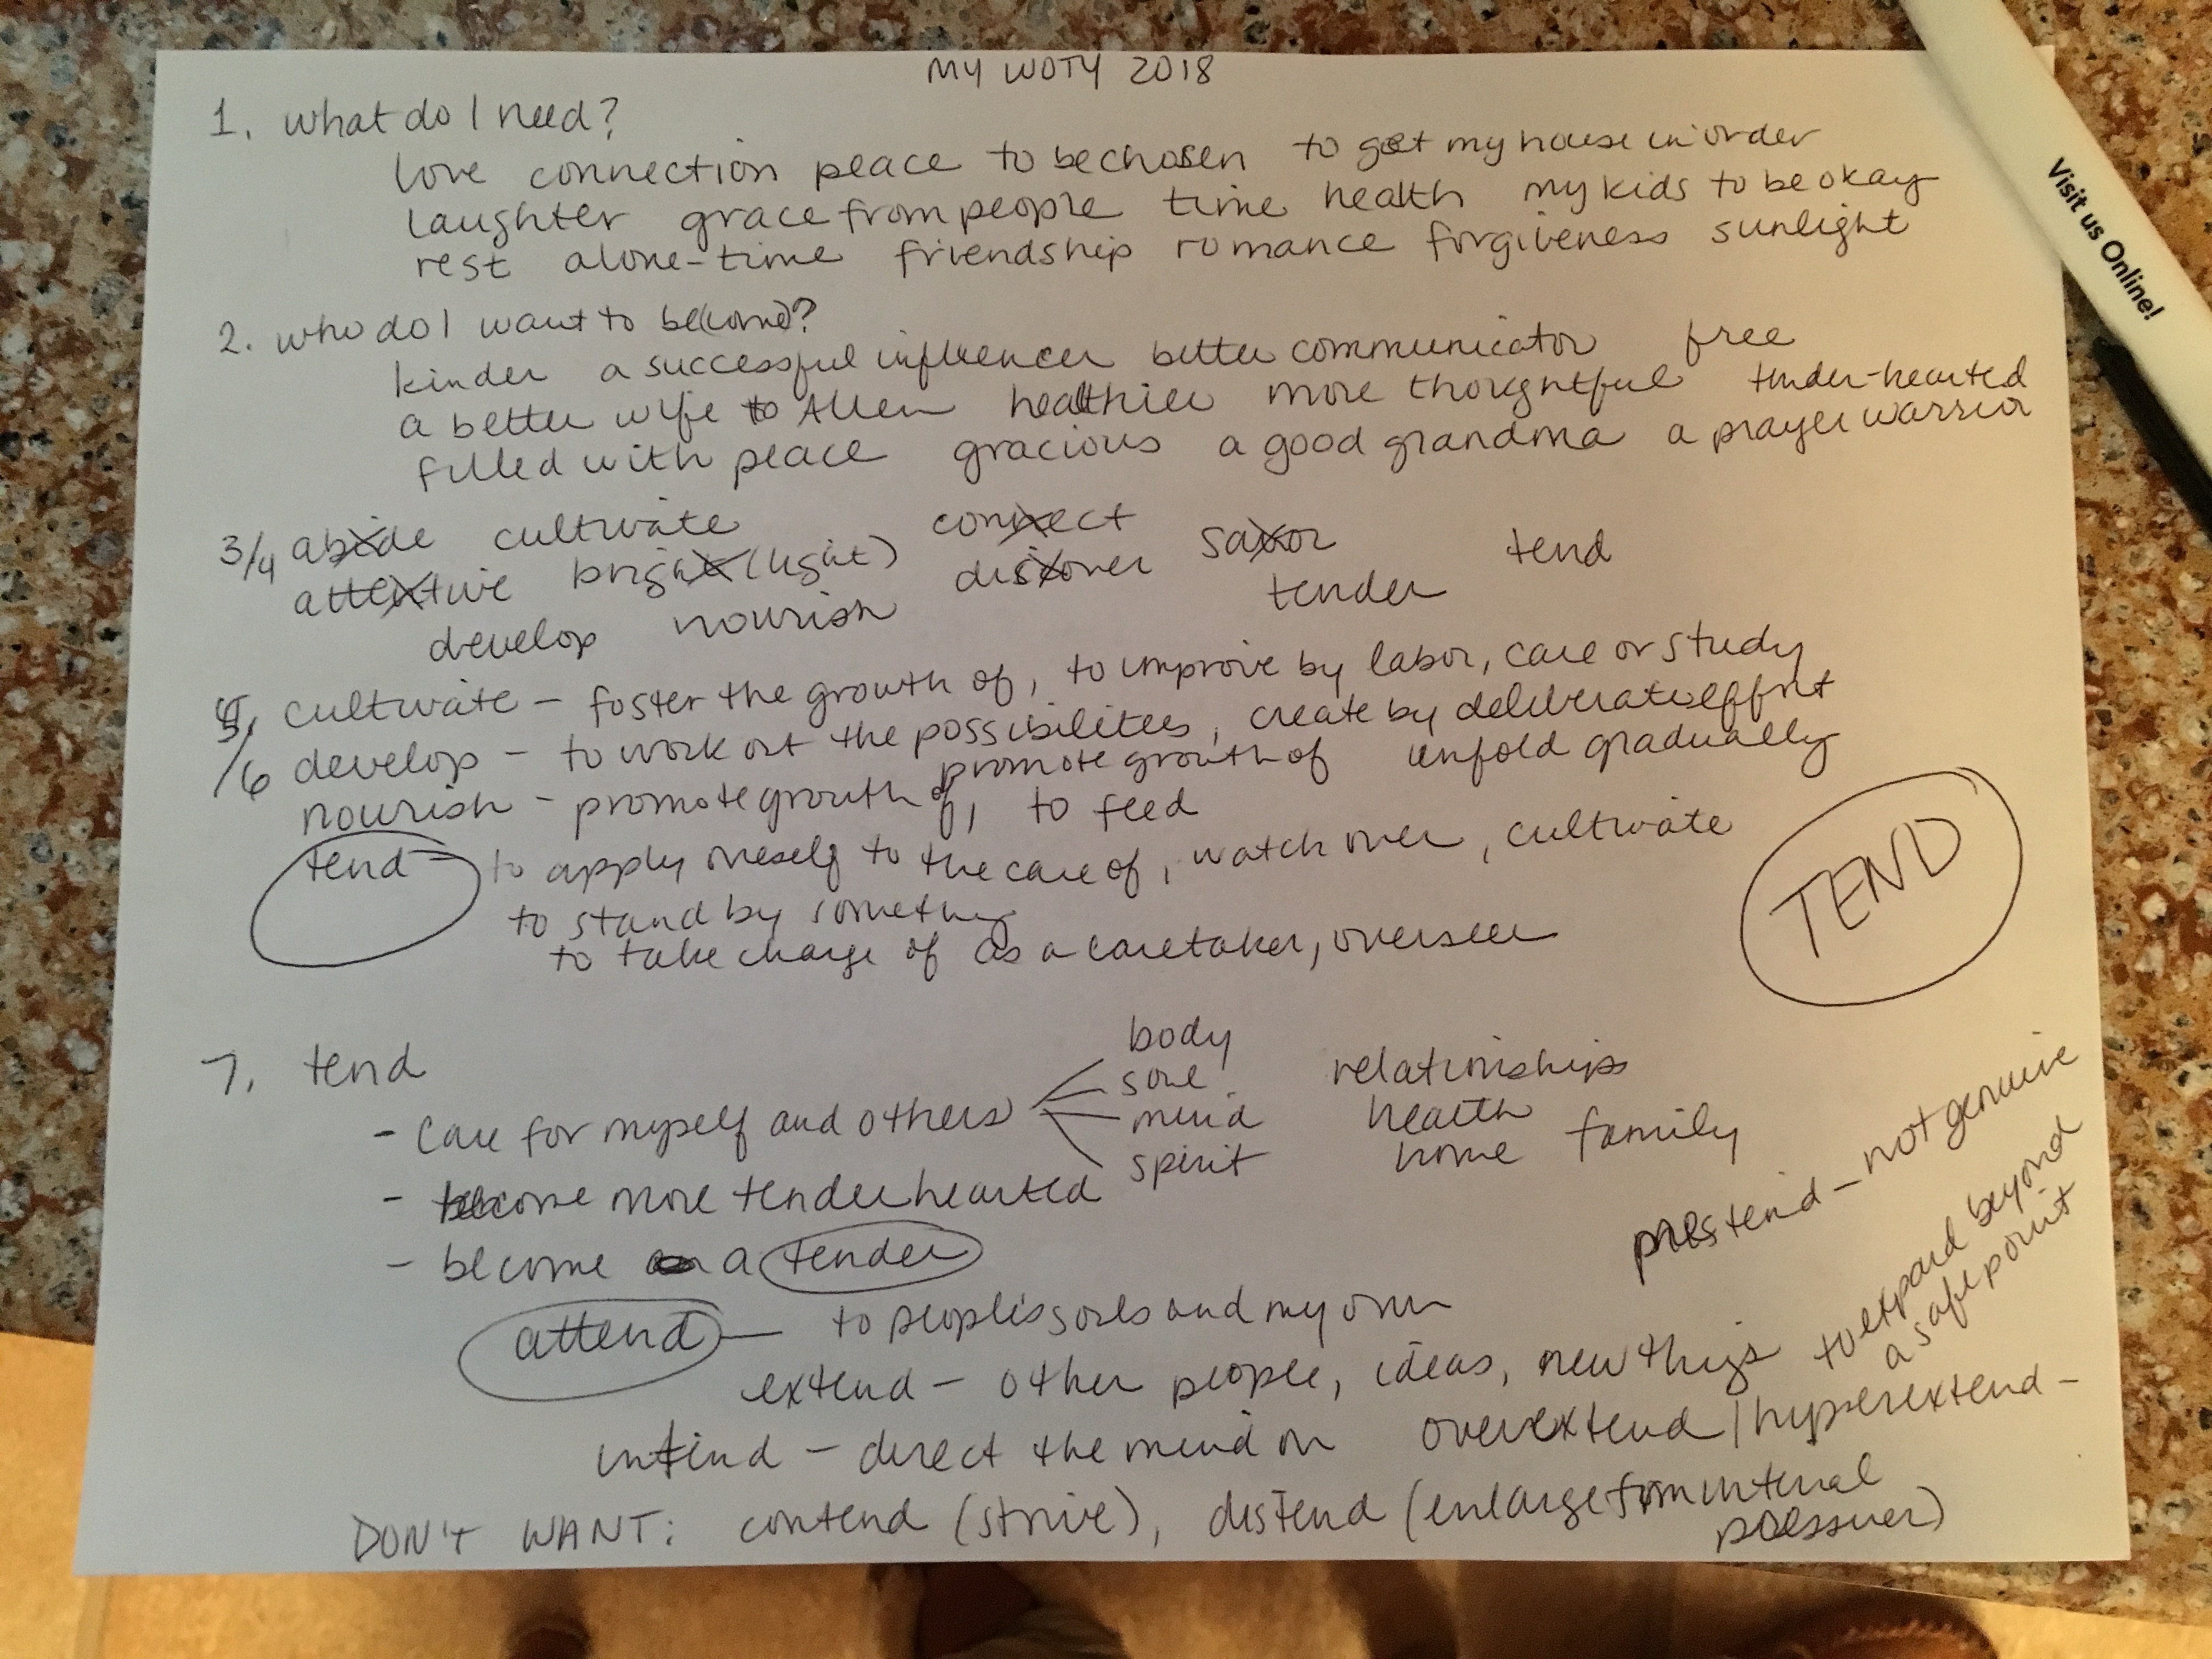 MY WOTY 2018
1. what do I need?
love connection peace to be chosen to get my house in order
laughter grace from people time health my kids to be okay
rest alone-time friendship romance forgiveness sunlight
2. who do I want to be(come)?
kinder a successful influencer better communicator free
a better wife to Allen healthier more thoughtful tender-hearted
filled with peace gracious a good grandma a prayer warrior
3/4 abide cultivate connect savor tend
attentive bright (light) discover tender
develop nourish
5/6 cultivate - foster the growth of, to improve by labor, care or study
develop - to work out the possibilitees, create by deliberate effort
promote growth of unfold gradually
nourish - promote growth of, to feed
tend - to apply oneself to the care of, watch over, cultivate
to stand by something
to take charge of as a caretaker, overseer
TEND
7. tend
- care for myself and others
body
soul
mind
spirit
relationships
health
home family
- become more tenderhearted
- become a tender
attend - to people's souls and my own
extend - other people, ideas, new things
intend - direct the mind on
overextend / hyperextend -
to expand beyond
a safe point
tend - not genuine
DON'T WANT: contend (strive), distend (enlarge from internal
pressure)
Visit us Online!